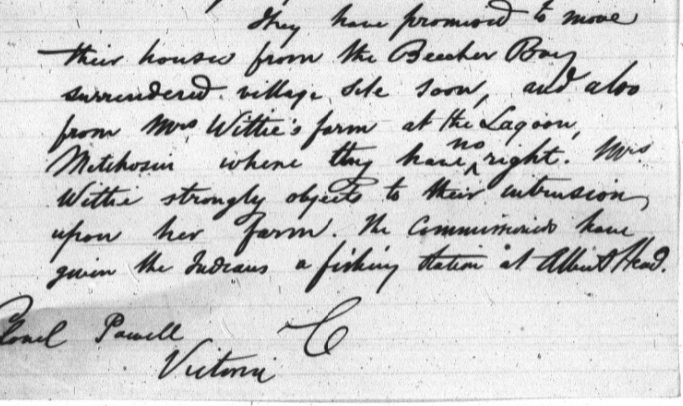 They have promised to move
their houses from the Beecher Bay
surrendered village site soon, and also
from Mrs Wittie's farm at the Lagoon,
Metchosin where they have no right. Mrs
Wittie strongly objects to their intrusion,
upon her farm. The Commissioners have
given the Indians a fishing station at Albert Head.
Powell
Victoria